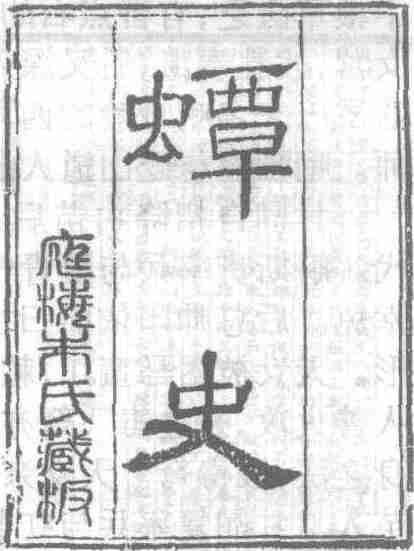 蟫史
庭梅朱氏藏板